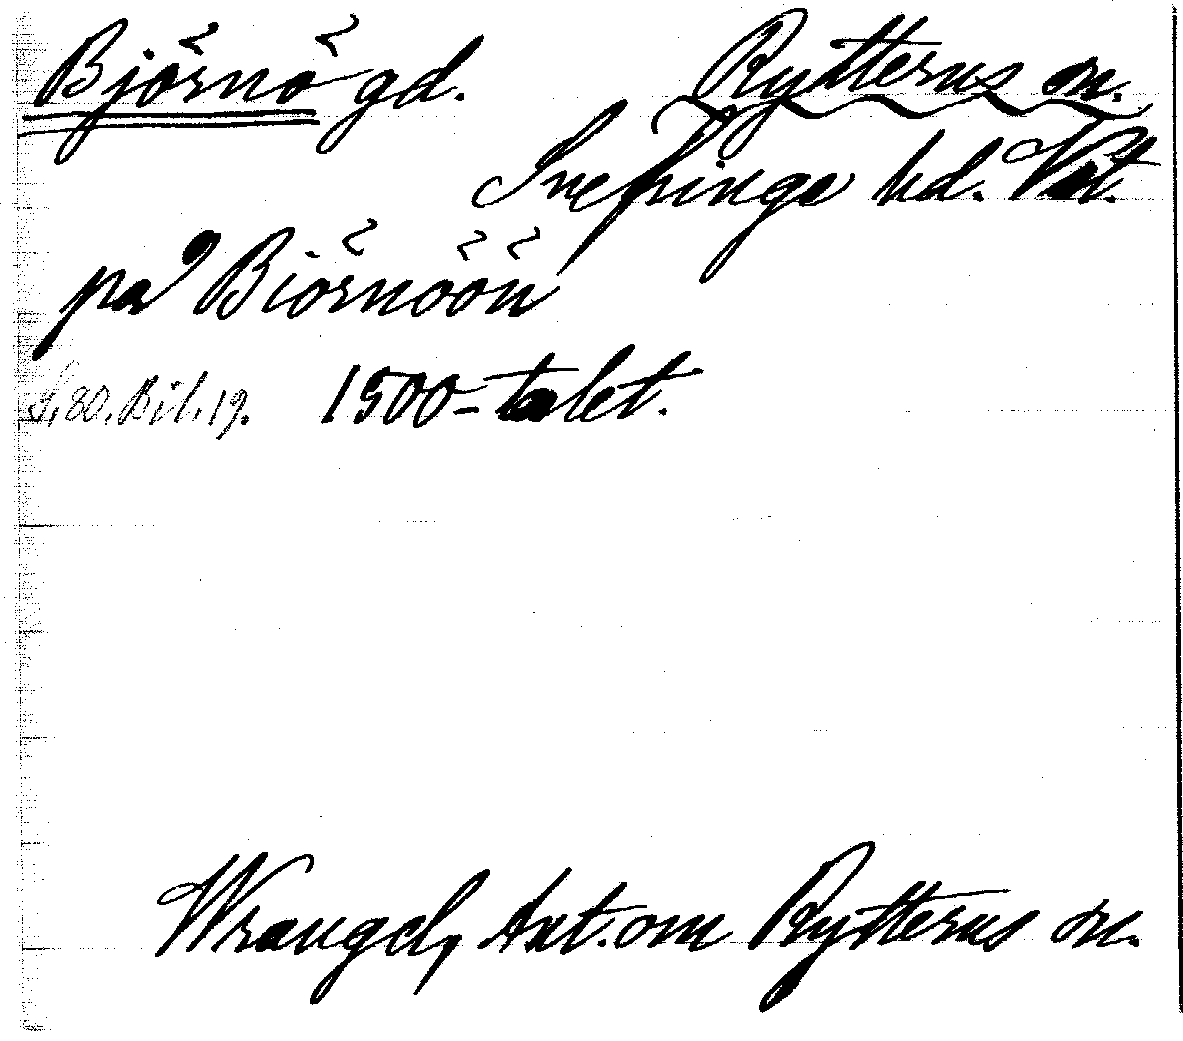 Björnö gd. Rytterns sn.
Snefringe hd. Vstm.
på Biörnöön
S. 80. Bil. 19. 1500-talet.
Wrangel, Ant. om Rytterns sn.